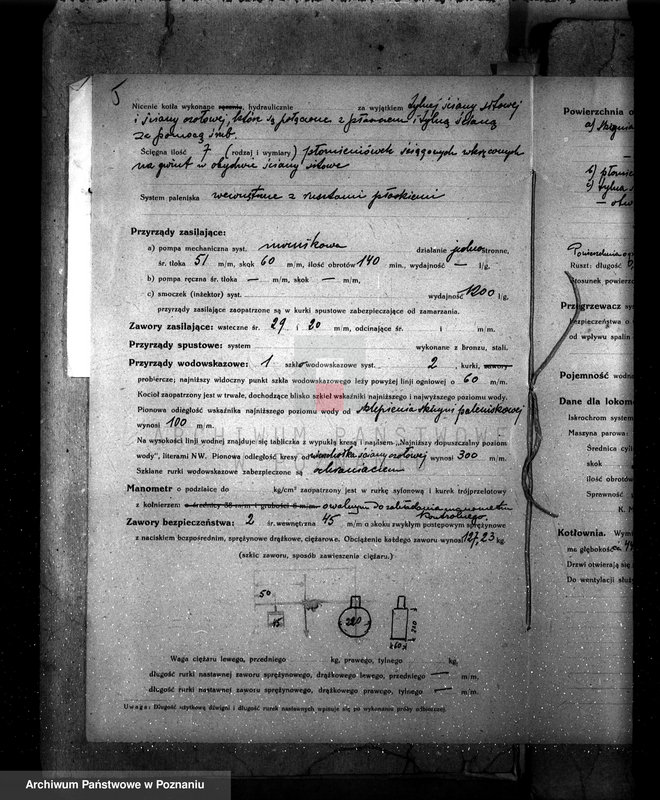 5
Nicenie kotła wykonane ręcznie, hydraulicznie za wyjątkiem tylnej ściany sitowej
i ściany czołowej, które są połączone z płaszczem i tylną ścianą
za pomocą śrub.
Ścięgna ilość 7 (rodzaj i wymiary) płomieniówek ściągowych wkręconych
na gwint w obydwie ściany sitowe
System paleniska wewnętrzne z rusztami płaskiemi
Przyrządy zasilające:
a) pompa mechaniczna syst. nurnikowa działanie jednostronne,
śr. tłoka 51 m/m, skok 60 m/m, ilość obrotów 140 min., wydajność — l/g,
b) pompa ręczna śr. tłoka — m/m, skok — m/m,
c) smoczek (inżektor) syst. wydajność 1200 l/g,
przyrządy zasilające zaopatrzone są w kurki spustowe zabezpieczające od zamarzania.
Zawory zasilające: wsteczne śr. 29 i 20 m/m, odcinające śr. i m/m.
Przyrządy spustowe: system wykonane z bronzu, stali.
Przyrządy wodowskazowe: 1 szkło wodowskazowe syst. 2 kurki, zawory
probiercze; najniższy widoczny punkt szkła wodowskazowego leży powyżej linji ogniowej o 60 m/m.
Kocioł zaopatrzony jest w trwałe, dochodzące blisko szkieł wskaźniki najniższego i najwyższego poziomu wody.
Pionowa odległość wskaźnika najniższego poziomu wody od sklepienia skrzyni paleniskowej
wynosi 100 m/m.
Na wysokości linji wodnej znajduje się tabliczka z wypukłą kresą i napisem „Najniższy dopuszczalny poziom
wody", literami NW. Pionowa odległość kresy od wierzchołka ściany czołowej wynosi 300 m/m.
Szklane rurki wodowskazowe zabezpieczone są ochraniaczem
Manometr o podziałce do kg/cm² zaopatrzony jest w rurkę syfonową i kurek trójprzelotowy
z kołnierzem: o średnicy 38 m/m i grubości 6 m/m owalnym do zakładania manometru
kontrolnego.
Zawory bezpieczeństwa: 2 śr. wewnętrzna 45 m/m o skoku zwykłym postępowym sprężynowe
z naciskiem bezpośrednim, sprężynowe drążkowe, ciężarowe. Obciążenie każdego zaworu wynosi 127,23 kg
(szkic zaworu, sposób zawieszenia ciężaru.)
50
Waga ciężaru lewego, przedniego kg, prawego, tylnego kg,
długość rurki nastawnej zaworu sprężynowego, drążkowego lewego, przedniego — m/m.
długość rurki nastawnej zaworu sprężynowego, drążkowego prawego, tylnego — m/m.
Uwaga: Długość użytkową dźwigni i długość rurek nastawnych wpisuje się po wykonaniu próby odbiorczej.
Powierzchnia o
a)
b) płomie
c) tylna s
Powierzchnia og
Ruszt: długość
Stosunek powierz
Przegrzewacz sy
bezpieczeństwa o
od wpływu spalin
Pojemność wodna
Dane dla lokomo
Iskrochron system
Maszyna parowa:
Średnica cylin
skok
ilość obrotów
Sprężność
K. M
Kotłownia. Wym
ma głębokość
Drzwi otwierają się
Do wentylacji służy
ARCHIWUM PAŃSTWOWE
W POZNANIU
Archiwum Państwowe w Poznaniu